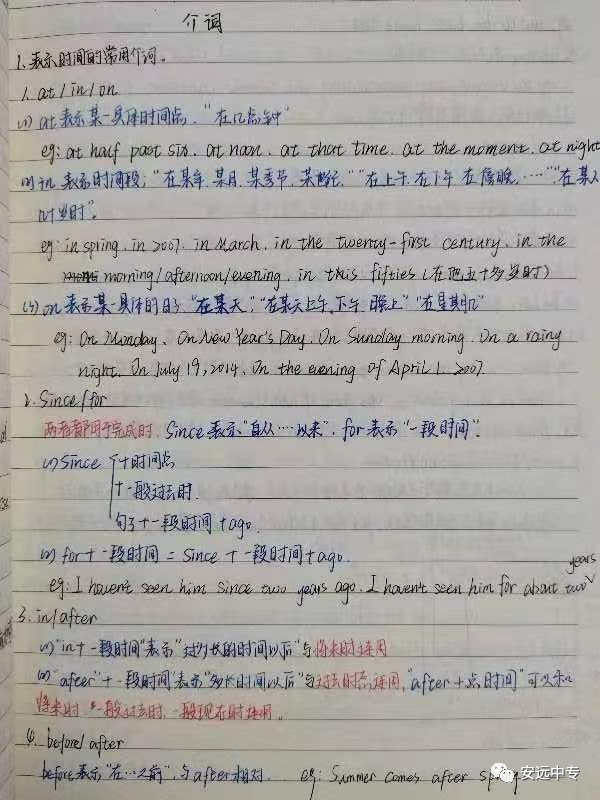 介词
1.表示时间的常用介词。
1. at / in / on
(1) at 表示某一具体时间点，"在几点钟"
eg: at half past six. at noon. at that time. at the moment. at night
(2) in 表示时间段；"在某年.某月.某季节.某世纪" "在上午.在下午.在傍晚……" "在某人
时".
eg: in spring. in 2007. in March. in the twenty-first century. in the
morning/afternoon/evening. in this fifties (在他五十多岁时)
(3) on 表示某一具体的日子 "在某天"；"在某天上午.下午.晚上" "在星期几"
eg: On Monday. On New Year's Day. On Sunday morning. On a rainy
night. On July 19, 2014. On the evening of April 1. 2007.
2. Since/for
两者都用于完成时. Since 表示"自从……以来". for 表示"一段时间".
(1) Since +时间点
+一般过去时.
句子+一段时间+ago.
(2) for+一段时间 = Since +一段时间+ago.
years
eg: I haven't seen him since two years ago. I haven't seen him for about two
3. in/after
(1) "in+一段时间"表示"过多长的时间以后"与将来时连用
(2) "after"+一段时间"表示"多长时间以后"与过去时态连用, "after+点时间"可以和
将来时.一般过去时.一般现在时连用。
4. before/after
before表示"在…之前",与after相对. eg: Summer comes after spring
安远中专